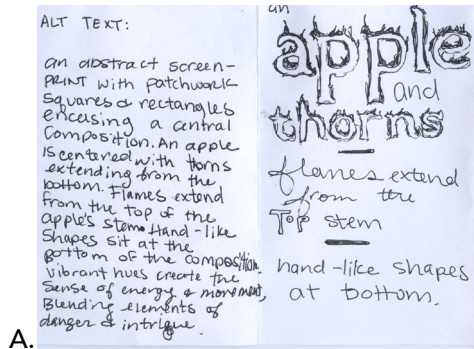 ALT TEXT:
an abstract screen-
PRINT with patchwork
squares & rectangles
encasing a central
composition. An apple
is centered with thorns
extending from the
bottom. Flames extend
from the top of the
apple's stem. Hand-like
shapes sit at the
bottom of the composition.
Vibrant hues create the
sense of energy & movement,
Blending elements of
danger & intrigue.
an
apple
and
thorns
flames extend
from the
TOP stem
hand-like shapes
at bottom.
A.